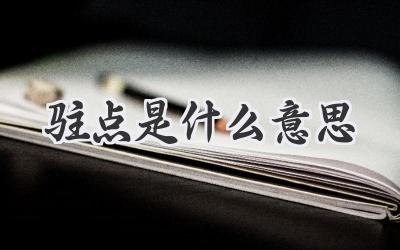 驻点是什么意思